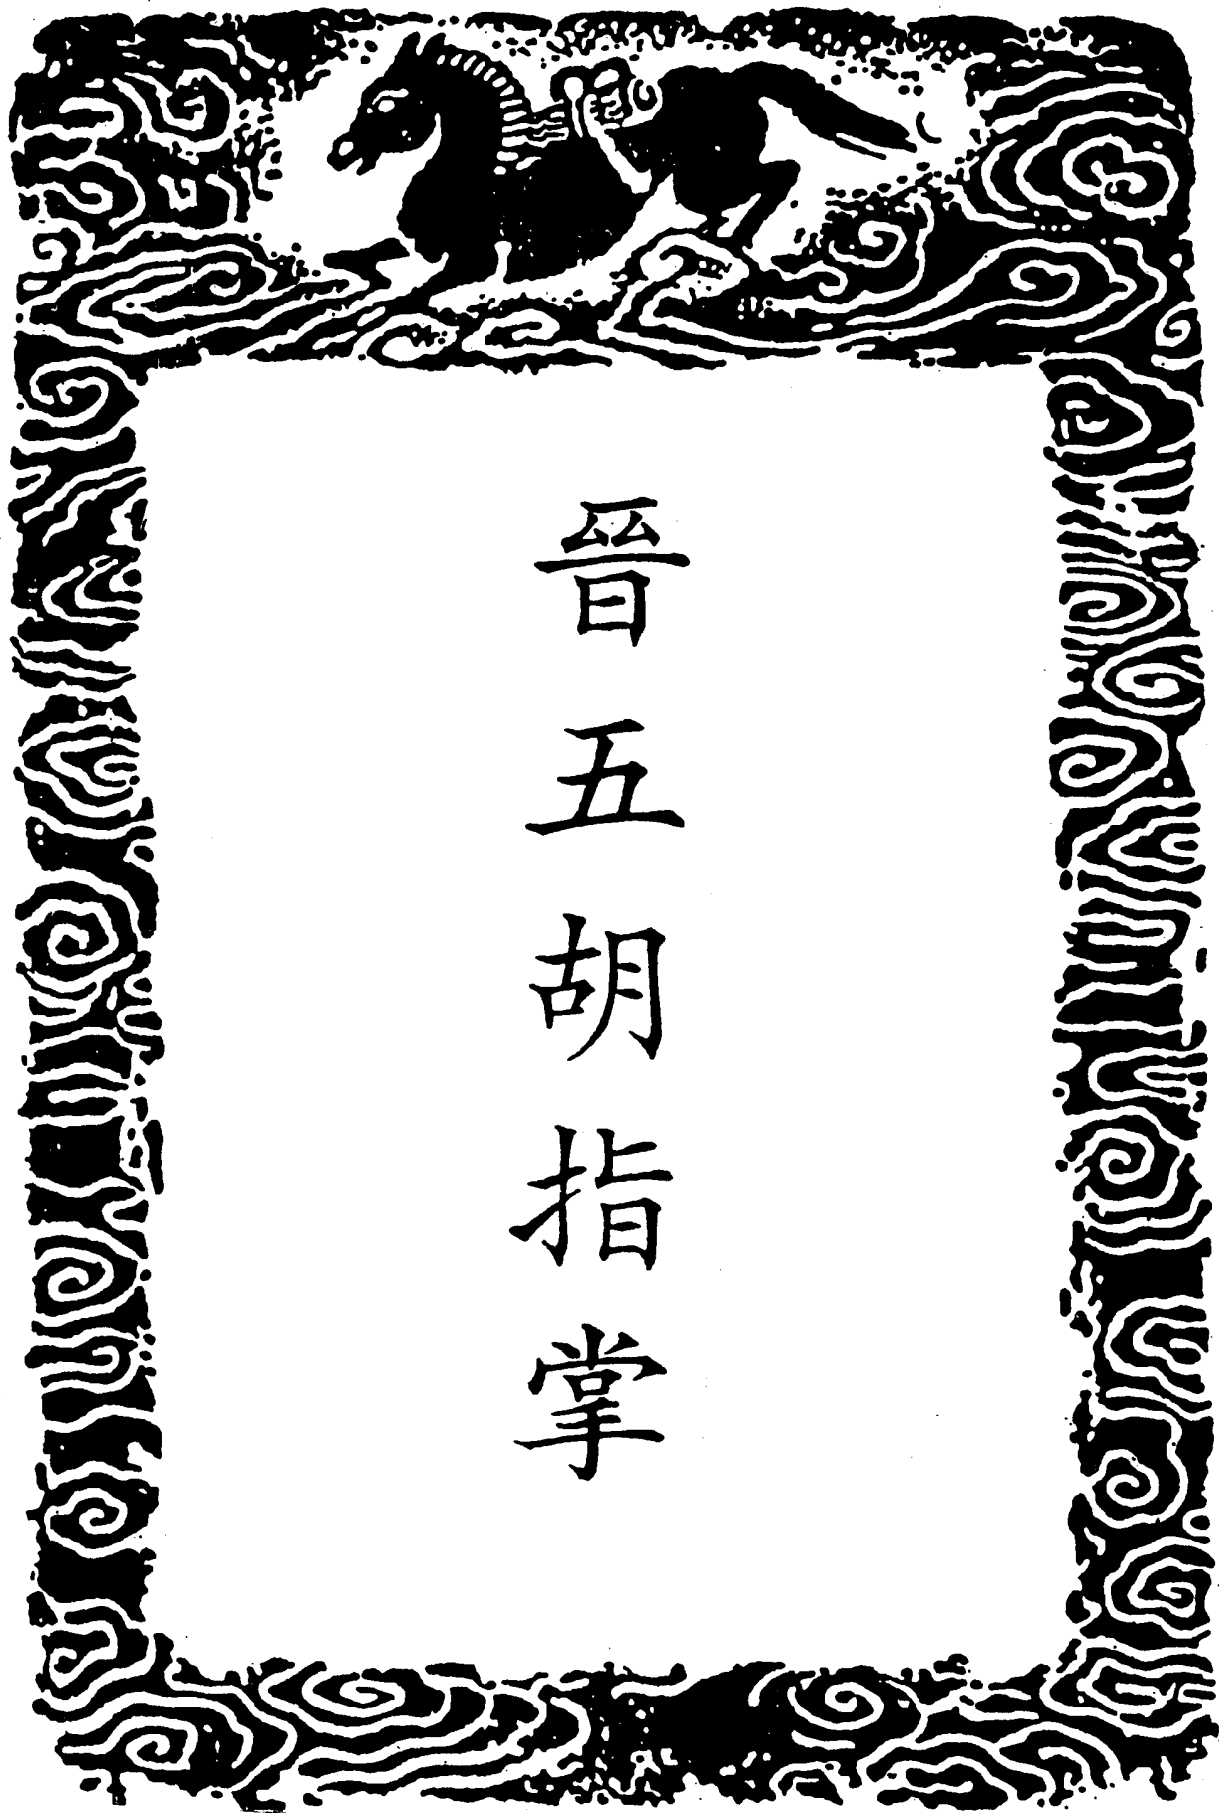 晉五胡指掌